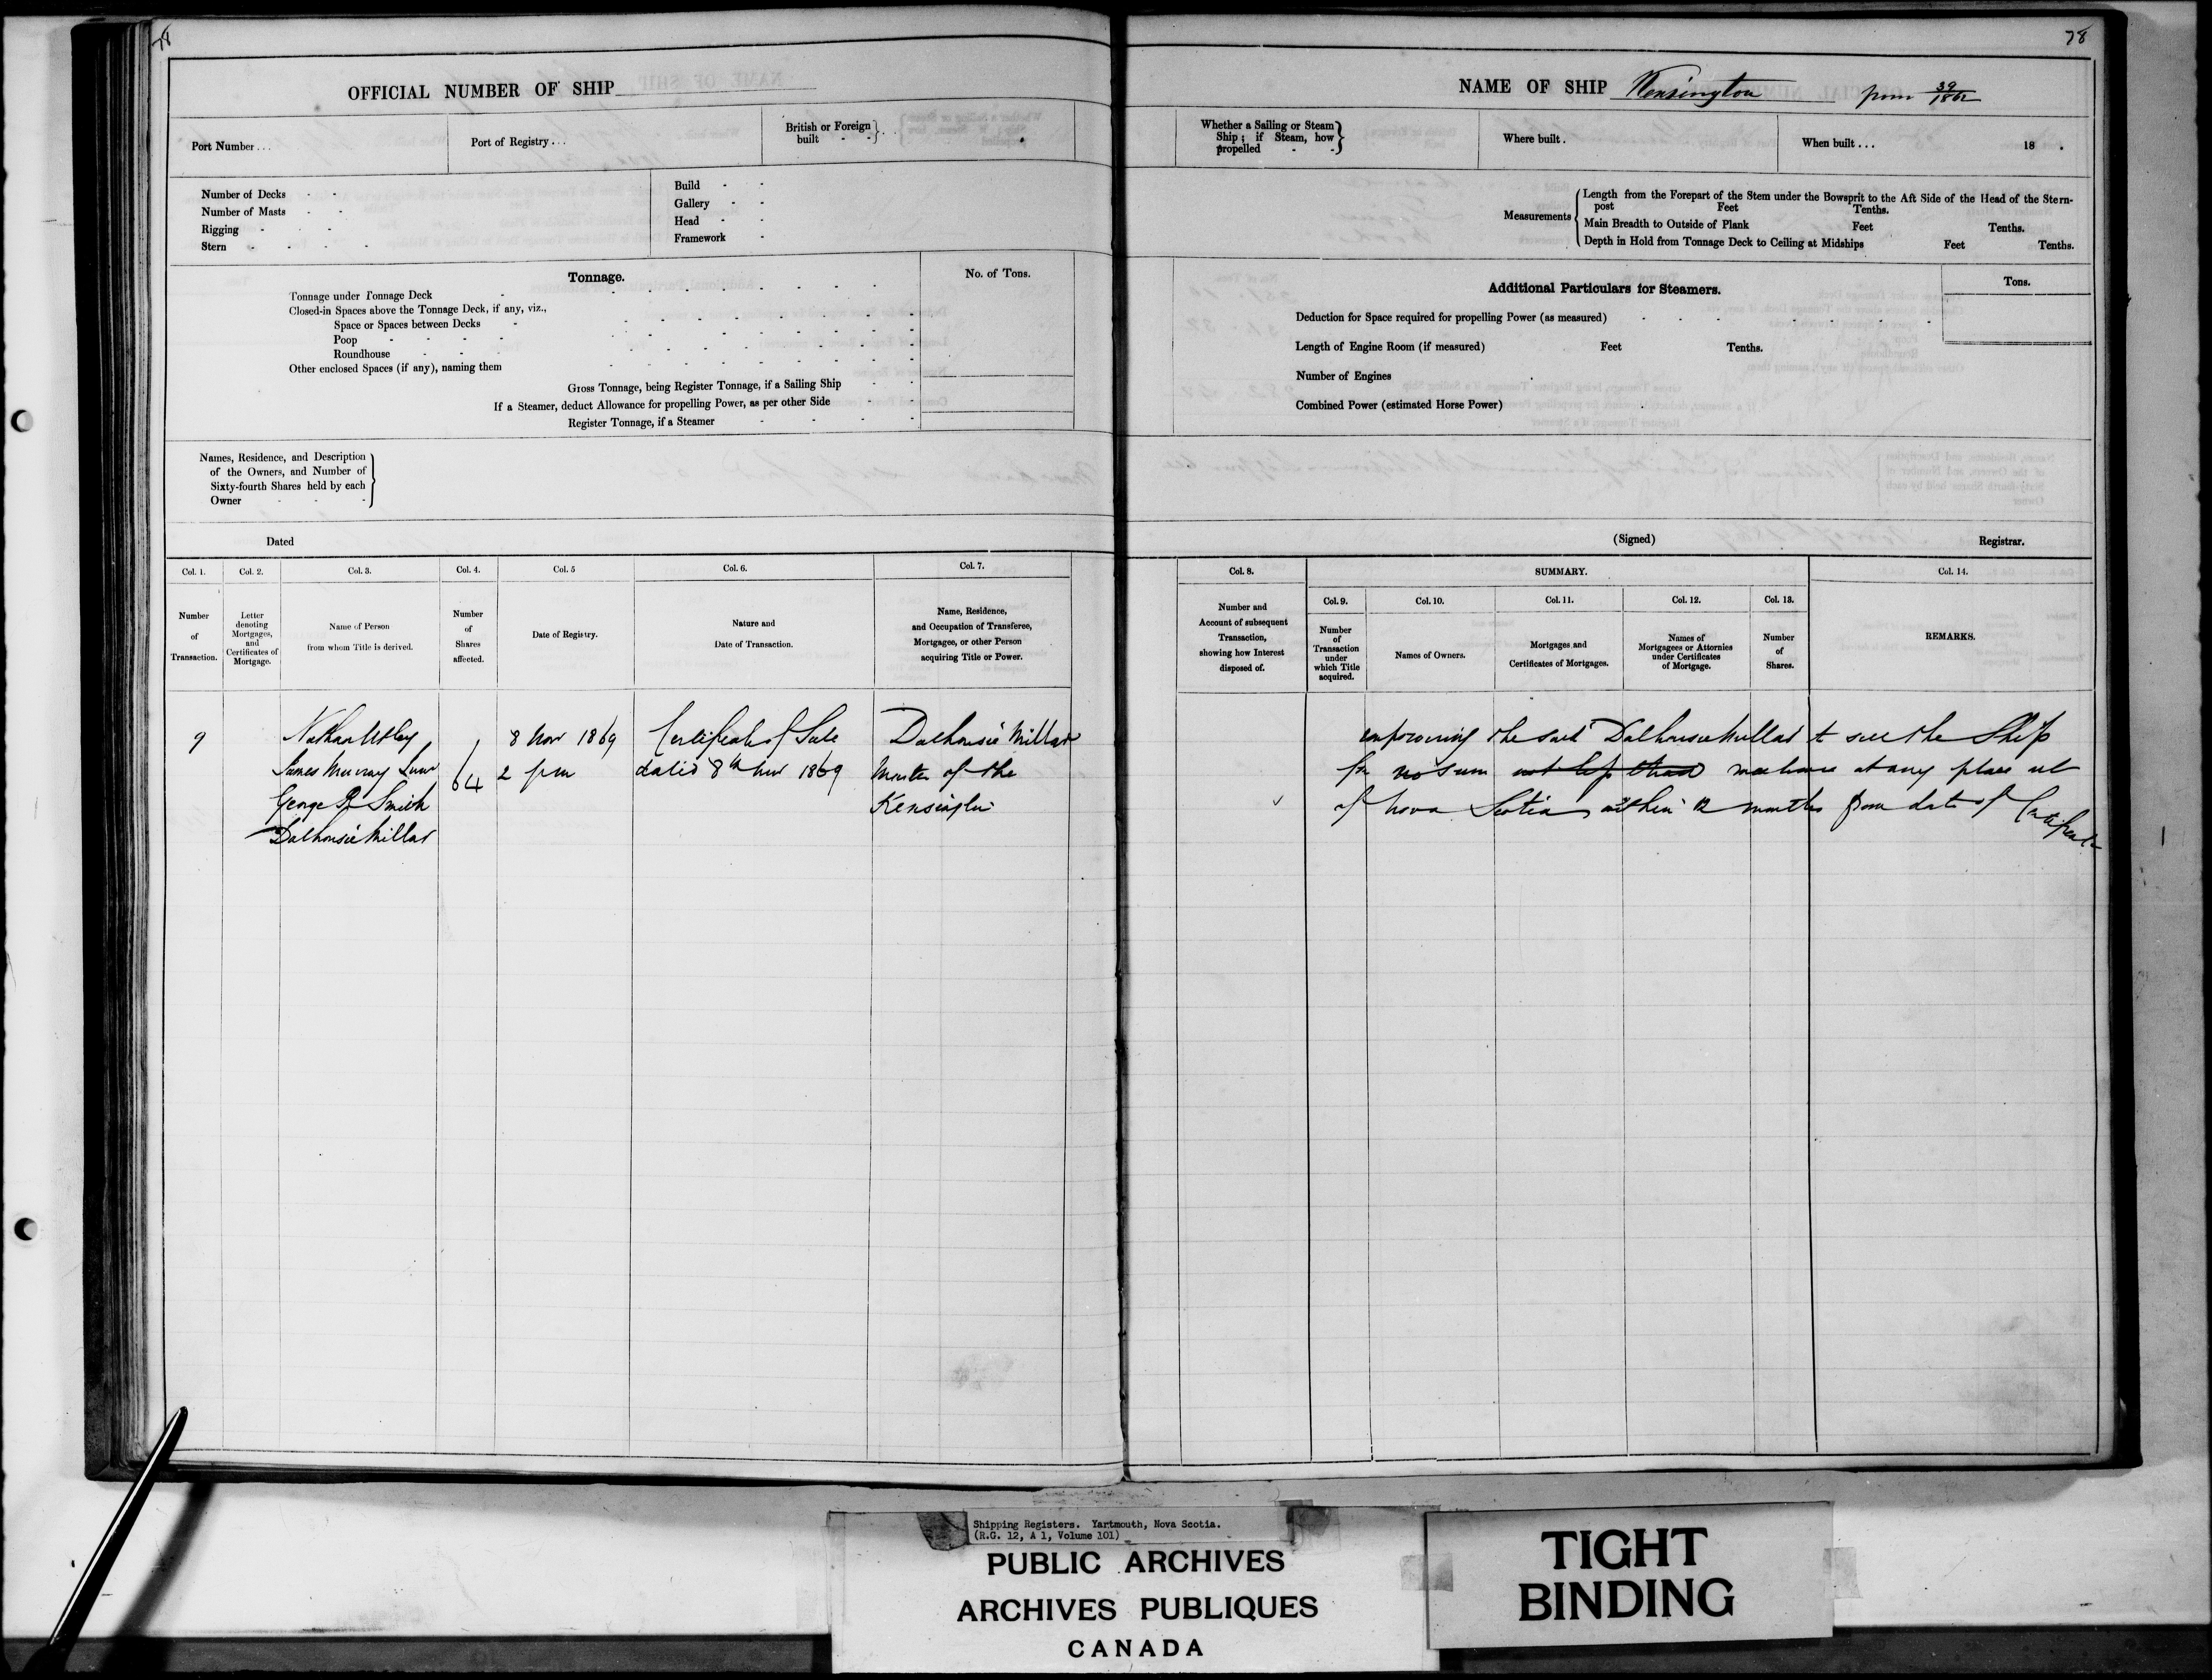 78
78
OFFICIAL NUMBER OF SHIP
Port Number...
Port of Registry...
British or Foreign built
Number of Decks
Number of Masts
Rigging
Stern
Build
Gallery
Head
Framework
Tonnage.
No. of Tons.
Tonnage under Tonnage Deck
Closed-in Spaces above the Tonnage Deck, if any, viz.,
Space or Spaces between Decks
Poop
Roundhouse
Other enclosed Spaces (if any), naming them
Gross Tonnage, being Register Tonnage, if a Sailing Ship
If a Steamer, deduct Allowance for propelling Power, as per other Side
Register Tonnage, if a Steamer
Names, Residence, and Description
of the Owners, and Number of
Sixty-fourth Shares held by each
Owner
Dated
Col. 1.
Col. 2.
Col. 3.
Col. 4.
Col. 5
Col. 6.
Col. 7.
Number
of
Transaction.
Letter
denoting
Mortgages,
and
Certificates of
Mortgage.
Name of Person
from whom Title is derived.
Number
of
Shares
affected.
Date of Registry.
Nature and
Date of Transaction.
Name, Residence,
and Occupation of Transferee,
Mortgagee, or other Person
acquiring Title or Power.
9
Nathan Utley
James Murray
George R Smith
Dalhousie Millar
64
8 Nov 1869
2 pm
Certificate of Sale
dated 8th Nov 1869
Dalhousie Millar
Master of the
Kensington
NAME OF SHIP Kensington from 39/1862
Whether a Sailing or Steam
Ship; if Steam, how
propelled
Where built.
When built...
18 .
Measurements
Length from the Forepart of the Stem under the Bowsprit to the Aft Side of the Head of the Stern-
post Feet Tenths.
Main Breadth to Outside of Plank Feet Tenths.
Depth in Hold from Tonnage Deck to Ceiling at Midships Feet Tenths.
Additional Particulars for Steamers.
Tons.
Deduction for Space required for propelling Power (as measured)
Length of Engine Room (if measured) Feet Tenths.
Number of Engines
Combined Power (estimated Horse Power)
(Signed)
Registrar.
Col. 8.
SUMMARY.
Col. 14.
Col. 9.
Col. 10.
Col. 11.
Col. 12.
Col. 13.
Number and
Account of subsequent
Transaction,
showing how Interest
disposed of.
Number
of
Transaction
under
which Title
acquired.
Names of Owners.
Mortgages and
Certificates of Mortgages.
Names of
Mortgagees or Attornies
under Certificates
of Mortgage.
Number
of
Shares.
REMARKS.
empowering the said Dalhousie Millar to sell the Ship
for no sum not less than at any place out
of Nova Scotia within 12 months from date of Certificate
Shipping Registers. Yartmouth, Nova Scotia.
(R.G. 12, A 1, Volume 101)
PUBLIC ARCHIVES
ARCHIVES PUBLIQUES
CANADA
TIGHT
BINDING